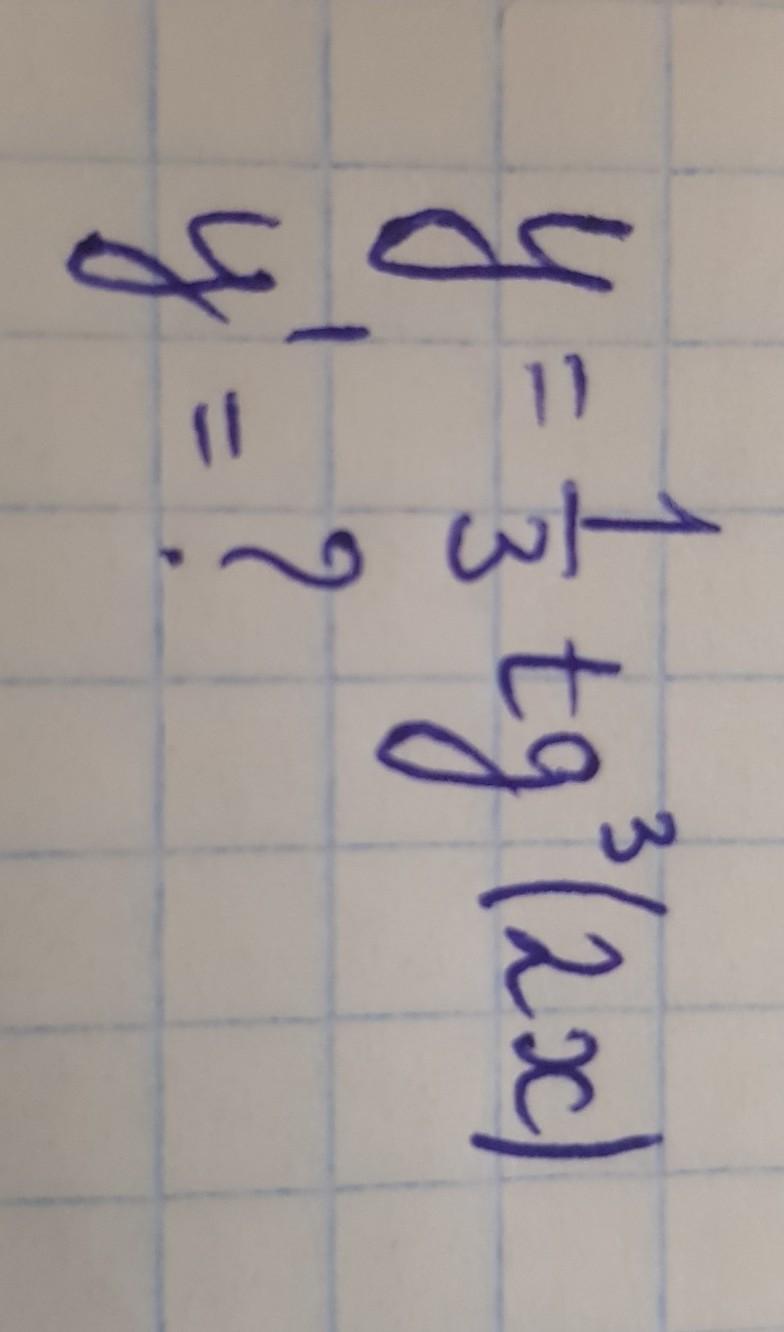 y = 1/3 tg³(2x)
y' = ?